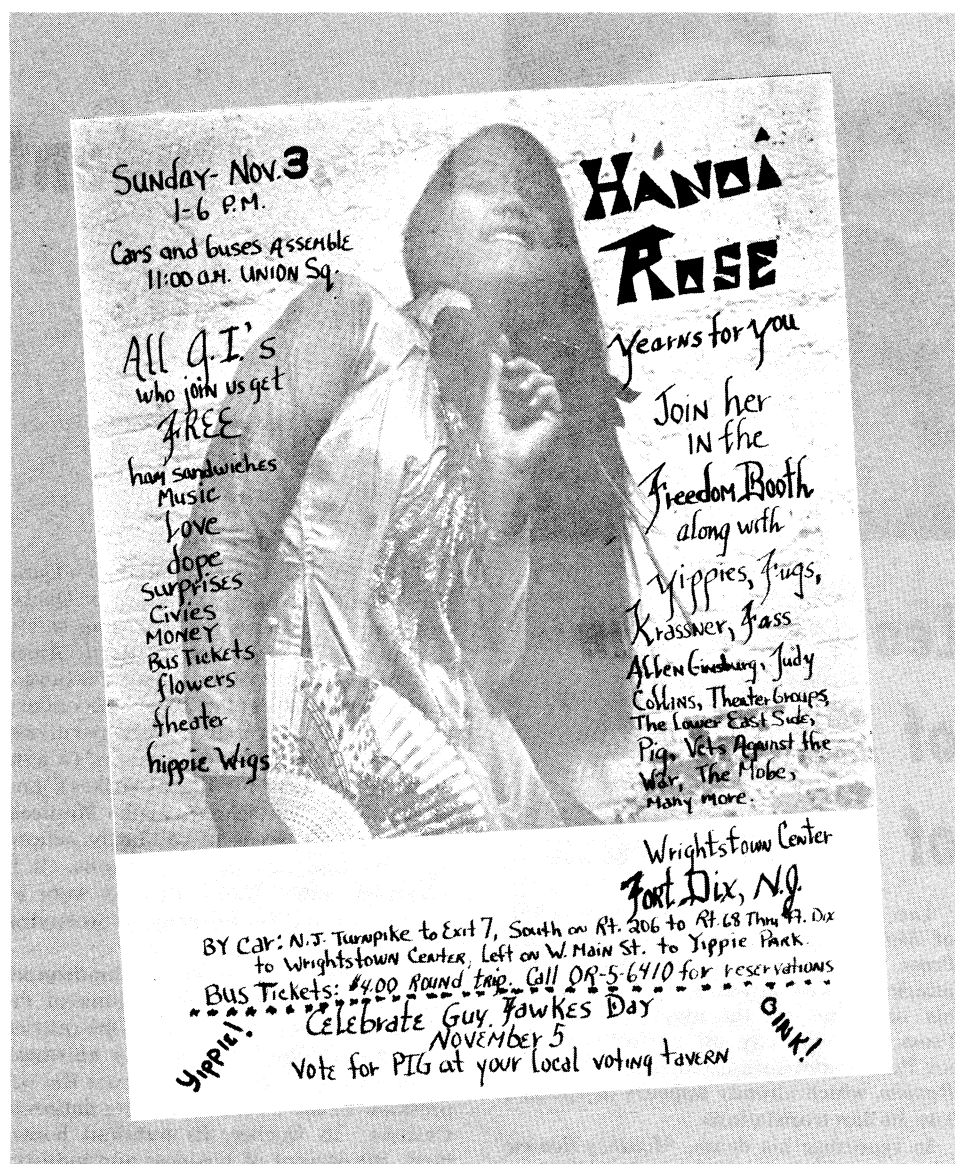 Sunday - Nov. 3
1-6 P.M.
Cars and buses Assemble
11:00 a.m. Union Sq.
All G.I.'s
who join us get
FREE
ham sandwiches
Music
Love
dope
surprises
Civies
Money
Bus Tickets
flowers
theater
hippie Wigs
HANOI
ROSE
yearns for you
Join her
in the
Freedom Booth
along with
Yippies, Fugs,
Krassner, Fass
Allen Ginsburg, Judy
Collins, Theater Groups,
The Lower East Side,
Pig, Vets Against the
War, The Mobe,
Many more.
Wrightstown Center
Fort Dix, N.J.
By Car: N.J. Turnpike to Exit 7, South on Rt. 206 to Rt. 68 Thru Ft. Dix
to Wrightstown Center, Left on W. Main St. to Yippie Park.
Bus Tickets: $4.00 Round trip. Call OR-5-6410 for reservations
Yippie!
Celebrate Guy Fawkes Day
November 5
Vote for PIG at your local voting tavern
OINK!